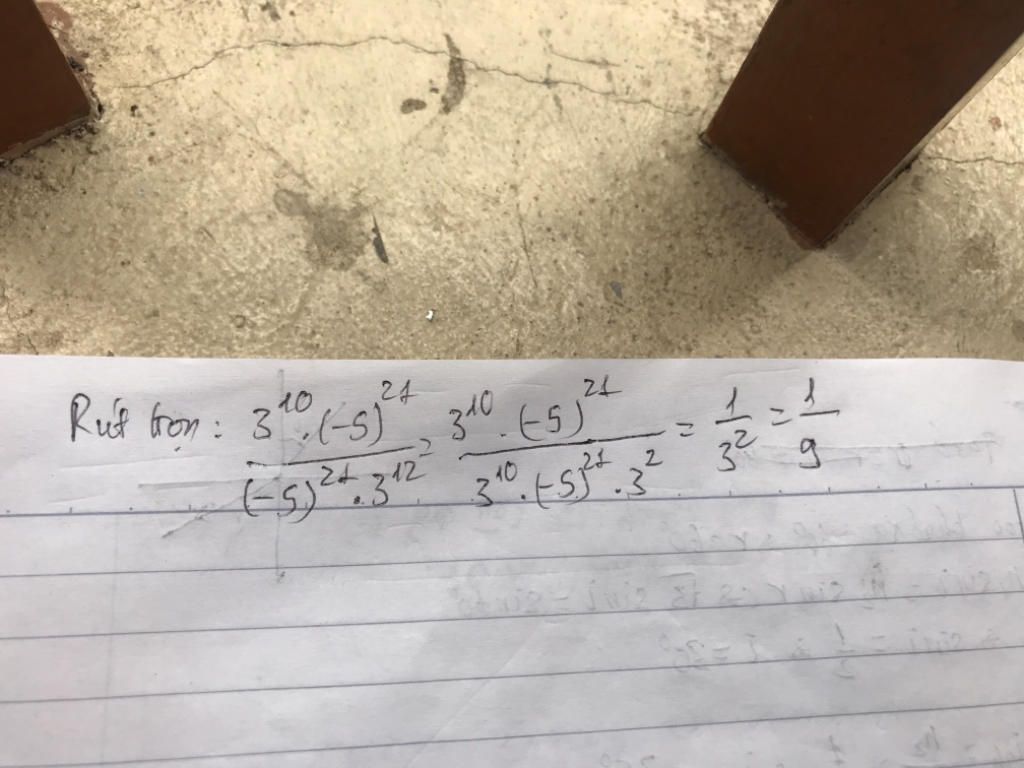 Rút gọn: 3^10 . (-5)^21 / (-5)^21 . 3^12 = 3^10 . (-5)^21 / 3^10 . (-5)^21 . 3^2 = 1 / 3^2 = 1 / 9